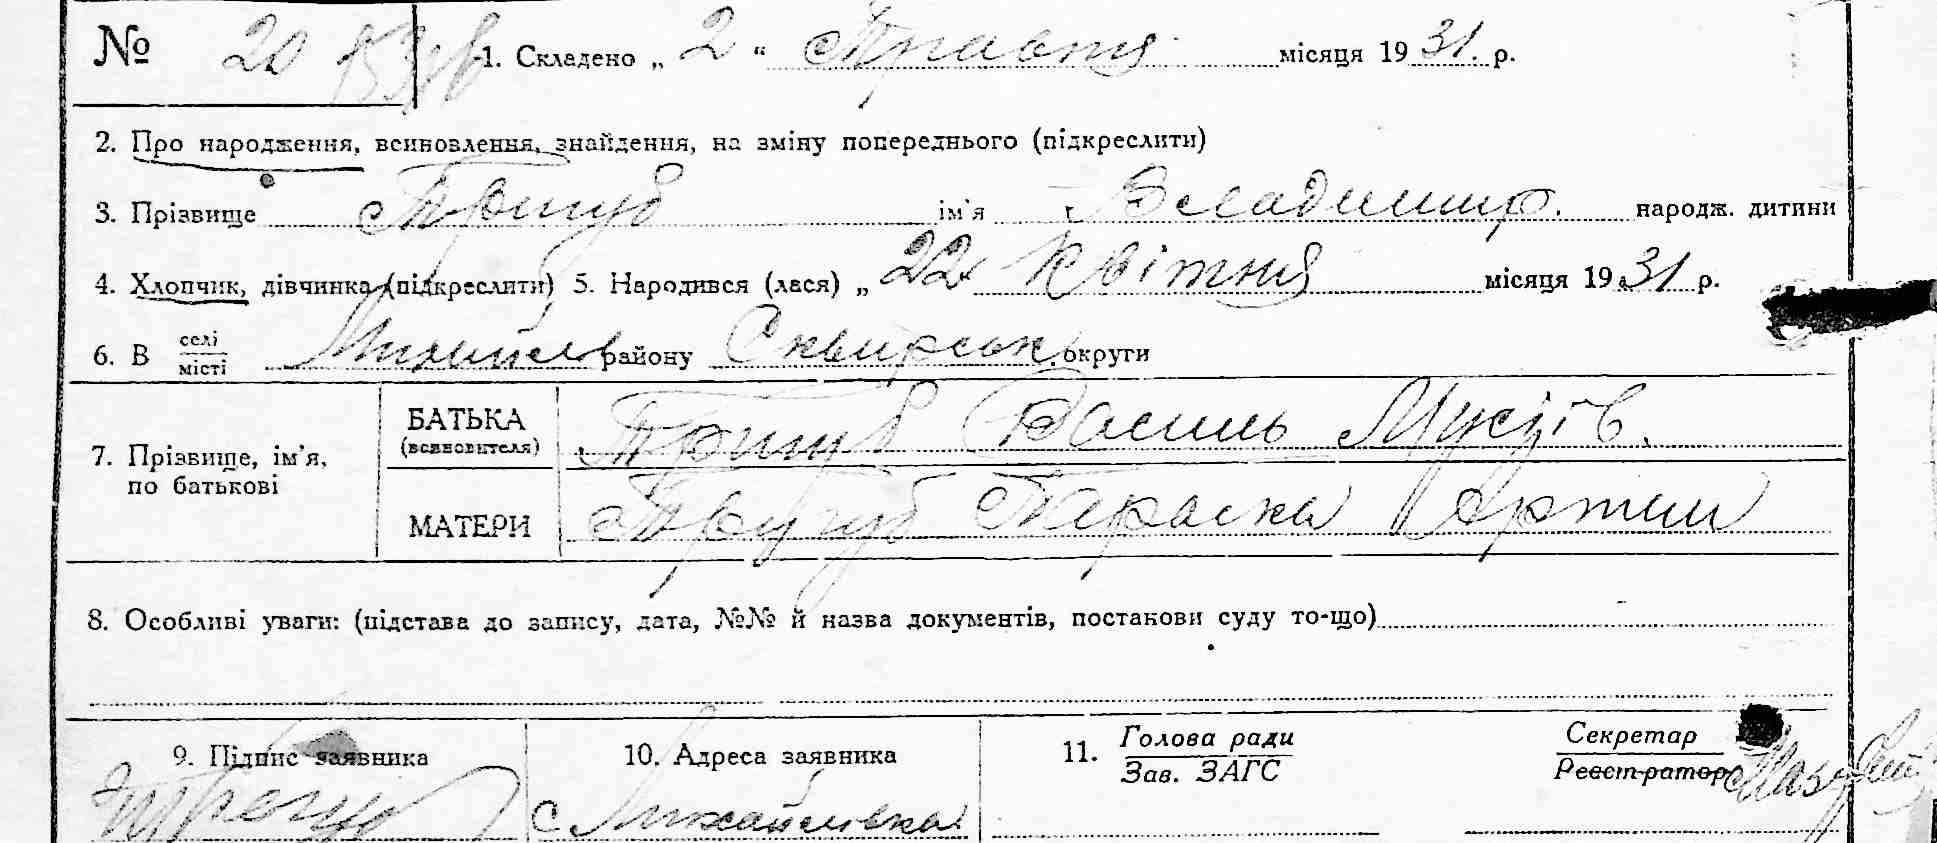 № 20 1. Складено „ 2 “ Травня місяця 1931. р.
2. Про народження, всиновлення, знайдення, на зміну попереднього (підкреслити)
3. Прізвище Тригуб ім'я Владимир. народж. дитини
4. Хлопчик, дівчинка (підкреслити) 5. Народився (лася) „ 22 Квітня місяця 1931 р.
6. В селі місті Михайлів району Сквирськ. округи
7. Прізвище, ім'я, по батькові
БАТЬКА (всиновителя) Тригуб Василь Мусіїв.
МАТЕРИ Тригуб Параска Артем
8. Особливі уваги: (підстава до запису, дата, №№ й назва документів, постанови суду то-що)
9. Підпис заявника 10. Адреса заявника 11. Голова ради Секретар
Зав. ЗАГС Реестратор
с Михайлівка